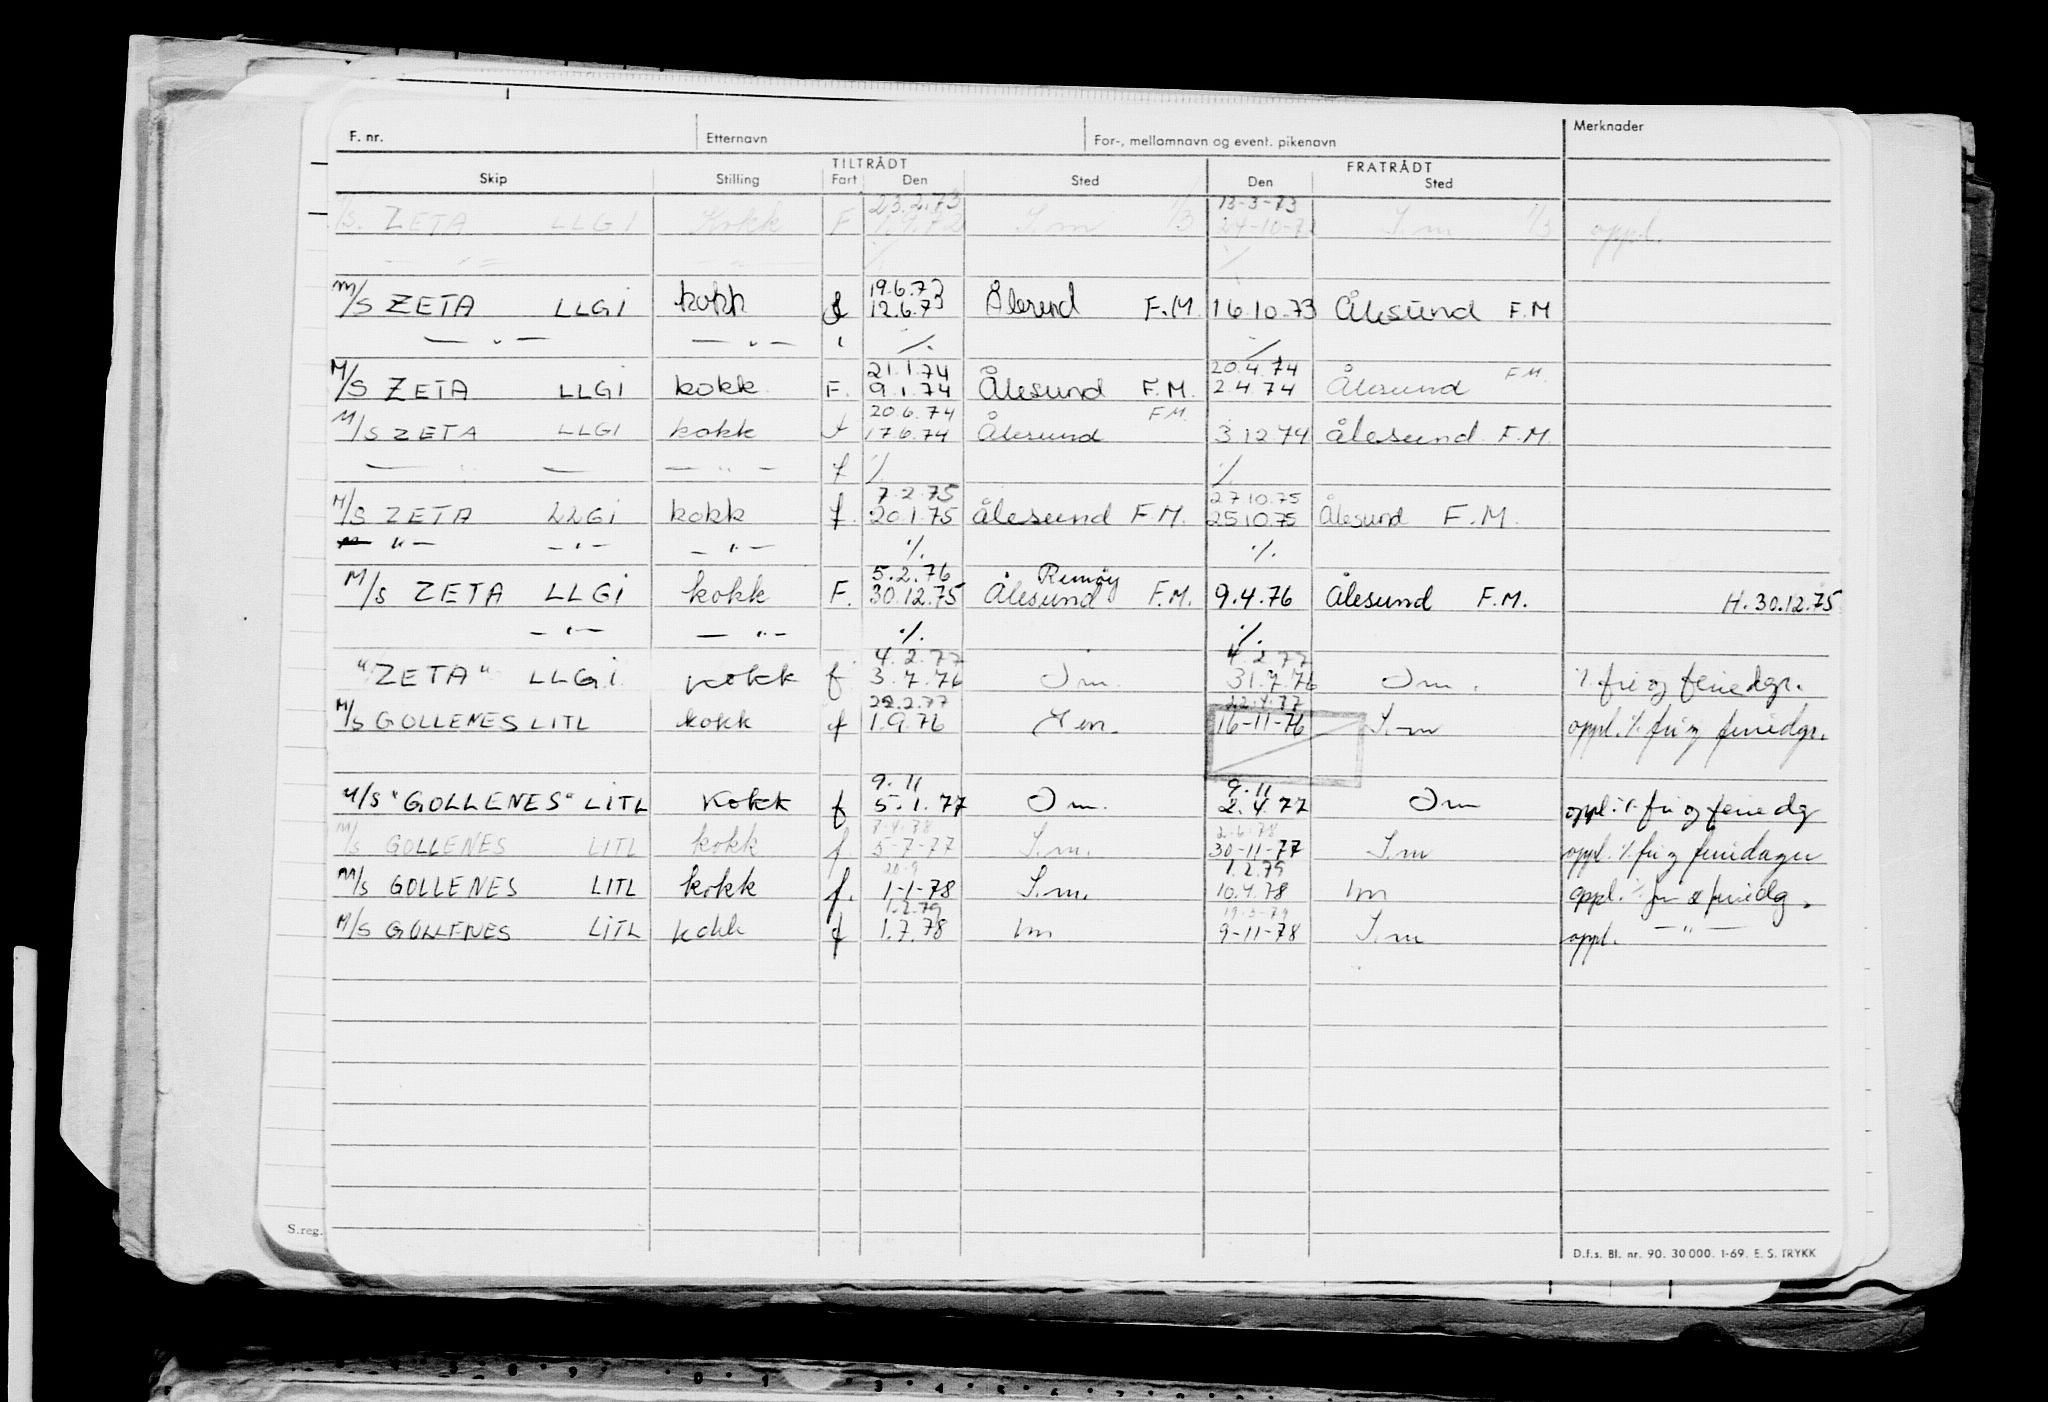 F. nr. Etternavn For-, mellomnavn og event. pikenavn Merknader
TILTRÅDT FRATRÅDT
Skip Stilling Fart Den Sted Den Sted
23.2.73 13-3-73
ZETA LLGI Kokk F 1/3 24-10-72 1/3 oppl.
19.6.73
M/S ZETA LLGI kokk f 12.6.73 Ålesund F.M. 16.10.73 Ålesund F.M
— " — — " — ./. ./.
21.1.74 20.4.74 F.M.
M/S ZETA LLGI kokk F. 9.1.74 Ålesund F.M. 2.4.74 Ålesund
20.6.74 F.M.
M/S ZETA LLGI kokk f 17.6.74 Ålesund 3.12.74 Ålesund F.M.
— " — — " — f ./. ./.
7.2.75 27.10.75
M/S ZETA LLGI kokk f. 20.1.75 Ålesund F.M. 25.10.75 Ålesund F.M.
" — — " — — " — ./. ./.
5.2.76 Remøy
M/S ZETA LLGI kokk F. 30.12.75 Ålesund F.M. 9.4.76 Ålesund F.M. H. 30.12.75
— " — — " — ./. ./.
4.2.77 4.2.77
"ZETA" LLGI kokk f 3.7.76 31.7.76 ./. fri og feriedgr.
22.2.77 22.4.77
M/S GOLLENES LITL kokk f 1.9.76 16-11-76 oppl. ./. fri og feriedgr.
9.11 9.11
M/S "GOLLENES" LITL Kokk f 5.1.77 2.4.77 oppl. ./. fri og feriedg
7.4.78 2.6.78
M/S GOLLENES LITL kokk f 5-7-77 S.m. 30-11-77 S.m oppl. ./. fri og feridager
20.9 1.2.79
M/S GOLLENES LITL kokk f. 1-1-78 S.m. 10.4.78 oppl. ./. fri & feriedg.
1.2.79 19-3-79
M/S GOLLENES LITL kokk f 1.7.78 9-11-78 S.m oppl. — " —
S.reg.
D.f.s. Bl. nr. 90. 30 000. 1-69. E. S. TRYKK